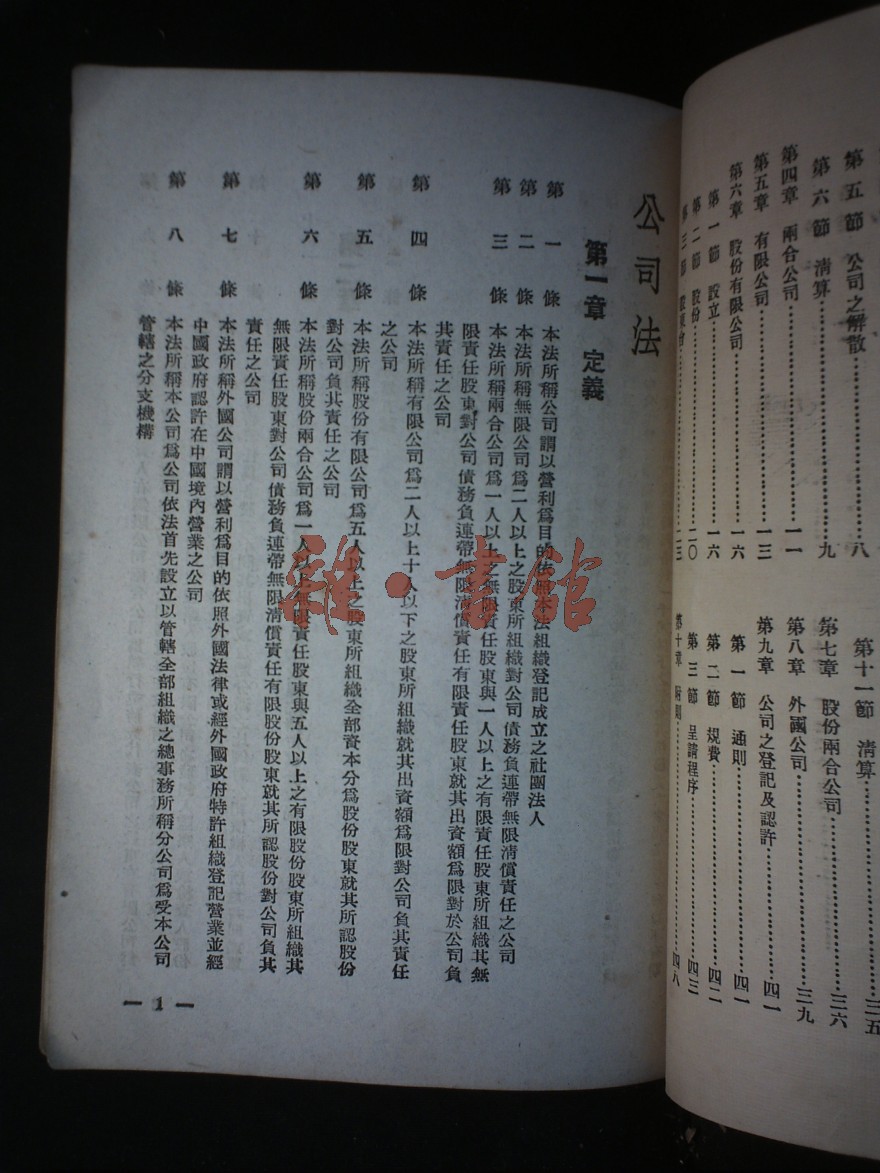 第五節 公司之解散……八
第六節 清算……九
第四章 兩合公司……一一
第五章 有限公司……一三
第六章 股份有限公司……一六
第一節 設立……一六
第二節 股份……二〇
第三節 股東會……二三
第十一節 清算……三五
第七章 股份兩合公司……三六
第八章 外國公司……三九
第九章 公司之登記及認許……四一
第一節 通則……四一
第二節 規費……四二
第三節 呈請程序……四三
第十章 附則……四八
公司法
第一章 定義
第一條 本法所稱公司謂以營利爲目的依照本法組織登記成立之社團法人
第二條 本法所稱無限公司爲二人以上之股東所組織對公司債務負連帶無限清償責任之公司
第三條 本法所稱兩合公司爲一人以上之無限責任股東與一人以上之有限責任股東所組織其無
限責任股東對公司債務負連帶無限清償責任有限責任股東就其出資額爲限對於公司負
其責任之公司
第四條 本法所稱有限公司爲二人以上十人以下之股東所組織就其出資額爲限對公司負其責任
之公司
第五條 本法所稱股份有限公司爲五人以上之股東所組織全部資本分爲股份股東就其所認股份
對公司負其責任之公司
第六條 本法所稱股份兩合公司爲一人以上無限責任股東與五人以上之有限股份股東所組織其
無限責任股東對公司債務負連帶無限清償責任有限責任股份股東就其所認股份對公司負其
責任之公司
第七條 本法所稱外國公司謂以營利爲目的依照外國法律或經外國政府特許組織登記營業並經
中國政府認許在中國境內營業之公司
第八條 本法所稱本公司爲公司依法首先設立以管轄全部組織之總事務所稱分公司爲受本公司
管轄之分支機構
— 1 —
雜·書館